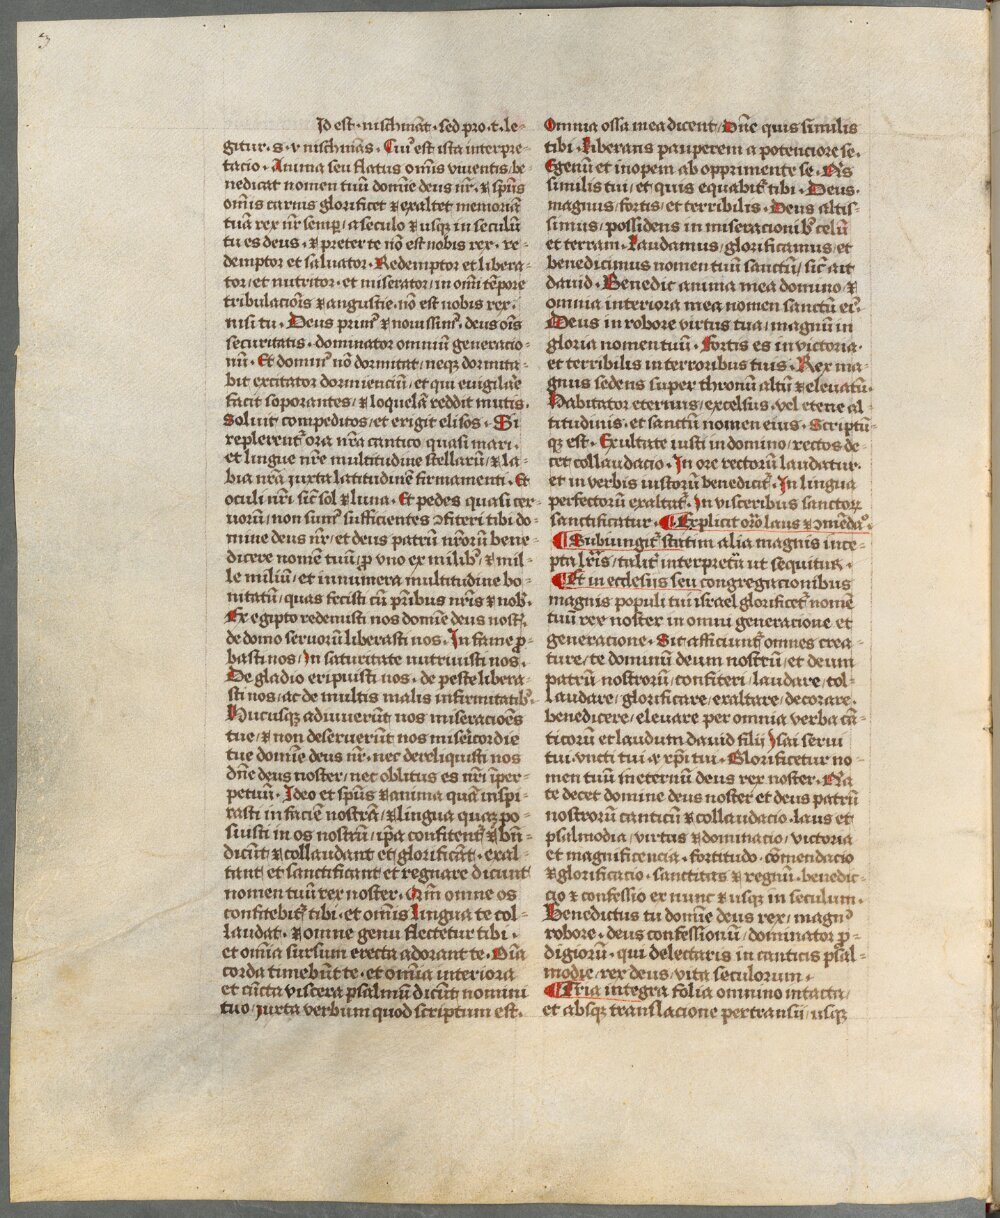 3
Id est · nischmāt · sed pro · t · le-
gitur · s · v nischmas · Cui᷒ est ista interpre-
tacio · Anima seu flatus om̄is viuentis/ be-
nedicat nomen tuū domīe deus nr̄ · ⁊ spūs
om̄is carnis glorificet ⁊ exaltet memoriā
tuā rex nr̄ semꝑ/ a seculo ⁊ usqꝫ in seculū
tu es deus · ⁊ preter te nō est nobis rex · re-
demptor et saluator · Redemptor et libera-
tor/ et nutritor · et miserator/ in om̄i tēpore
tribulaciōis ⁊ angustie · nō est nobis rex ·
nisi tu · Deus prim᷒ ⁊ nouissim᷒ · deus ōis
securitatis · dominator omniū generacio-
nū · Et domin᷒ nō dormitat/ neqꝫ dormita-
bit excitator dormienciū/ et qui euigilāe
facit soporantes/ ⁊ loquelā reddit mutis ·
Soluit compeditos/ et erigit elisos · Si
replerent᷑ ora nr̄a cantico quasi mari ·
et lingue nr̄e multitudine stellarū/ ⁊ la-
bia nr̄a iuxta latitudinē firmamenti · Et
oculi nr̄i sic̄ sol ⁊ luna · Et pedes quasi cer-
uorū/ non sum᷒ sufficientes ꝯfiteri tibi do-
mine deus nr̄/ et deus patrū nr̄orū bene-
dicere nomē tuū/ ꝓ vno ex milib᷒/ ⁊ mil-
le miliū/ et innumera multitudine bo-
nitatū/ quas fecisti cū pr̄ibus nr̄is ⁊ nob᷒ ·
Ex egipto redemisti nos domīe deus nost᷑ ·
de domo seruorū liberasti nos · In fame ꝓ-
basti nos/ In saturitate nutriuisti nos ·
De gladio eripuisti nos · de peste libera-
sti nos/ ac de multis malis infirmitatib᷒ ·
Hucusqꝫ adiuuerūt nos miseracioēs
tue/ ⁊ non deseruerūt nos misericordie
tue domīe deus nr̄ · nec dereliquisti nos
dn̄e deus noster/ nec oblitus es nr̄i īper-
petuū · Ideo et spūs ⁊ anima quā inspi-
rasti in faciē nostrā/ ⁊ lingua quaꝫ po-
suisti in os nostrū/ ip̄a confitent᷑/ ⁊ bn̄-
dicūt/ ⁊ collaudant et glorificāt · exal-
tant/ et sanctificant et regnare dicunt
nomen tuū rex noster · Qm̄ omne os
confitebit᷑ tibi · et om̄is lingua te col-
laudat · ⁊ omne genu flectetur tibi ·
et om̄ia sursum erecta adorant te · Oīa
corda timebūt te · et om̄ia interiora
et cūcta viscera psalmū dicūt nomini
tuo/ iuxta verbum quod scriptum est ·
Omnia ossa mea dicent/ Dn̄e quis similis
tibi · Liberans pauperem a potenciore se ·
Egenū et inopem ab opprimente se · Q̄is
similis tui/ et quis equabit᷑ tibi · Deus ·
magnus/ fortis/ et terribilis · Deus altis-
simus/ possidens in miseracionib᷒ celū
et terram · Laudamus/ glorificamus/ et
benedicimus nomen tuū sanctū/ sic̄ ait
dauid · Benedic anima mea domino/ ⁊
omnia interiora mea nomen sanctū ei᷒ ·
Deus in robore virtus tua/ magnū in
gloria nomen tuū · Fortis es in victoria ·
et terribilis in terroribus tuis · Rex ma-
gnus sedens super thronū altū ⁊ eleuatū ·
Habitator eternus/ excelsus · vel eterne al-
titudinis · et sanctū nomen eius · Scriptū-
qꝫ est · Exultate iusti in domino/ rectos de-
cet collaudacio · In ore rectorū laudatur ·
et in verbis iustorū benedicit᷑ · In lingua
perfectorū exaltat᷑ · In visceribus sanctoꝝ
sanctificatur · ¶ Explicit orō laus ⁊ ꝯmēdaᵒ ·
¶ Subiungit᷑ statim alia magnis ince-
pta lr̄is/ talit᷑ interpretū ut sequitur ·
¶ Et in ecclesiis seu congregacionibus
magnis populi tui israel glorificet᷑ nomē
tuū rex noster in omni generacione et
generacione · Sic afficiunt᷑ omnes crea-
ture/ te dominū deum nostrū/ et deum
patrū nostrorū/ confiteri/ laudare/ col-
laudare/ glorificare/ exaltare/ decorare ·
benedicere/ eleuare per omnia verba cā-
ticorū et laudum dauid filij Isai serui
tui · vncti tui · ⁊ xp̄i tui · Glorificetur no-
men tuū ineternū deus rex noster · Na
te decet domine deus noster et deus patrū
nostrorū canticū ⁊ collaudacio · laus et
psalmodia/ virtus ⁊ dominacio/ victoria
et magnificencia · fortitudo · cōmendacio
⁊ glorificacio · sanctitas ⁊ regnū · benedic-
cio ⁊ confessio ex nunc ⁊ usqꝫ in seculum ·
Benedictus tu domīe deus rex/ magn᷒
robore · deus confessionū/ dominator ꝓ-
digiorū · qui delectaris in canticis psal-
modie/ rex deus/ vita seculorum ·
¶ Tria integra folia omnino intacta/
et absqꝫ translacione pertransii/ usqꝫ